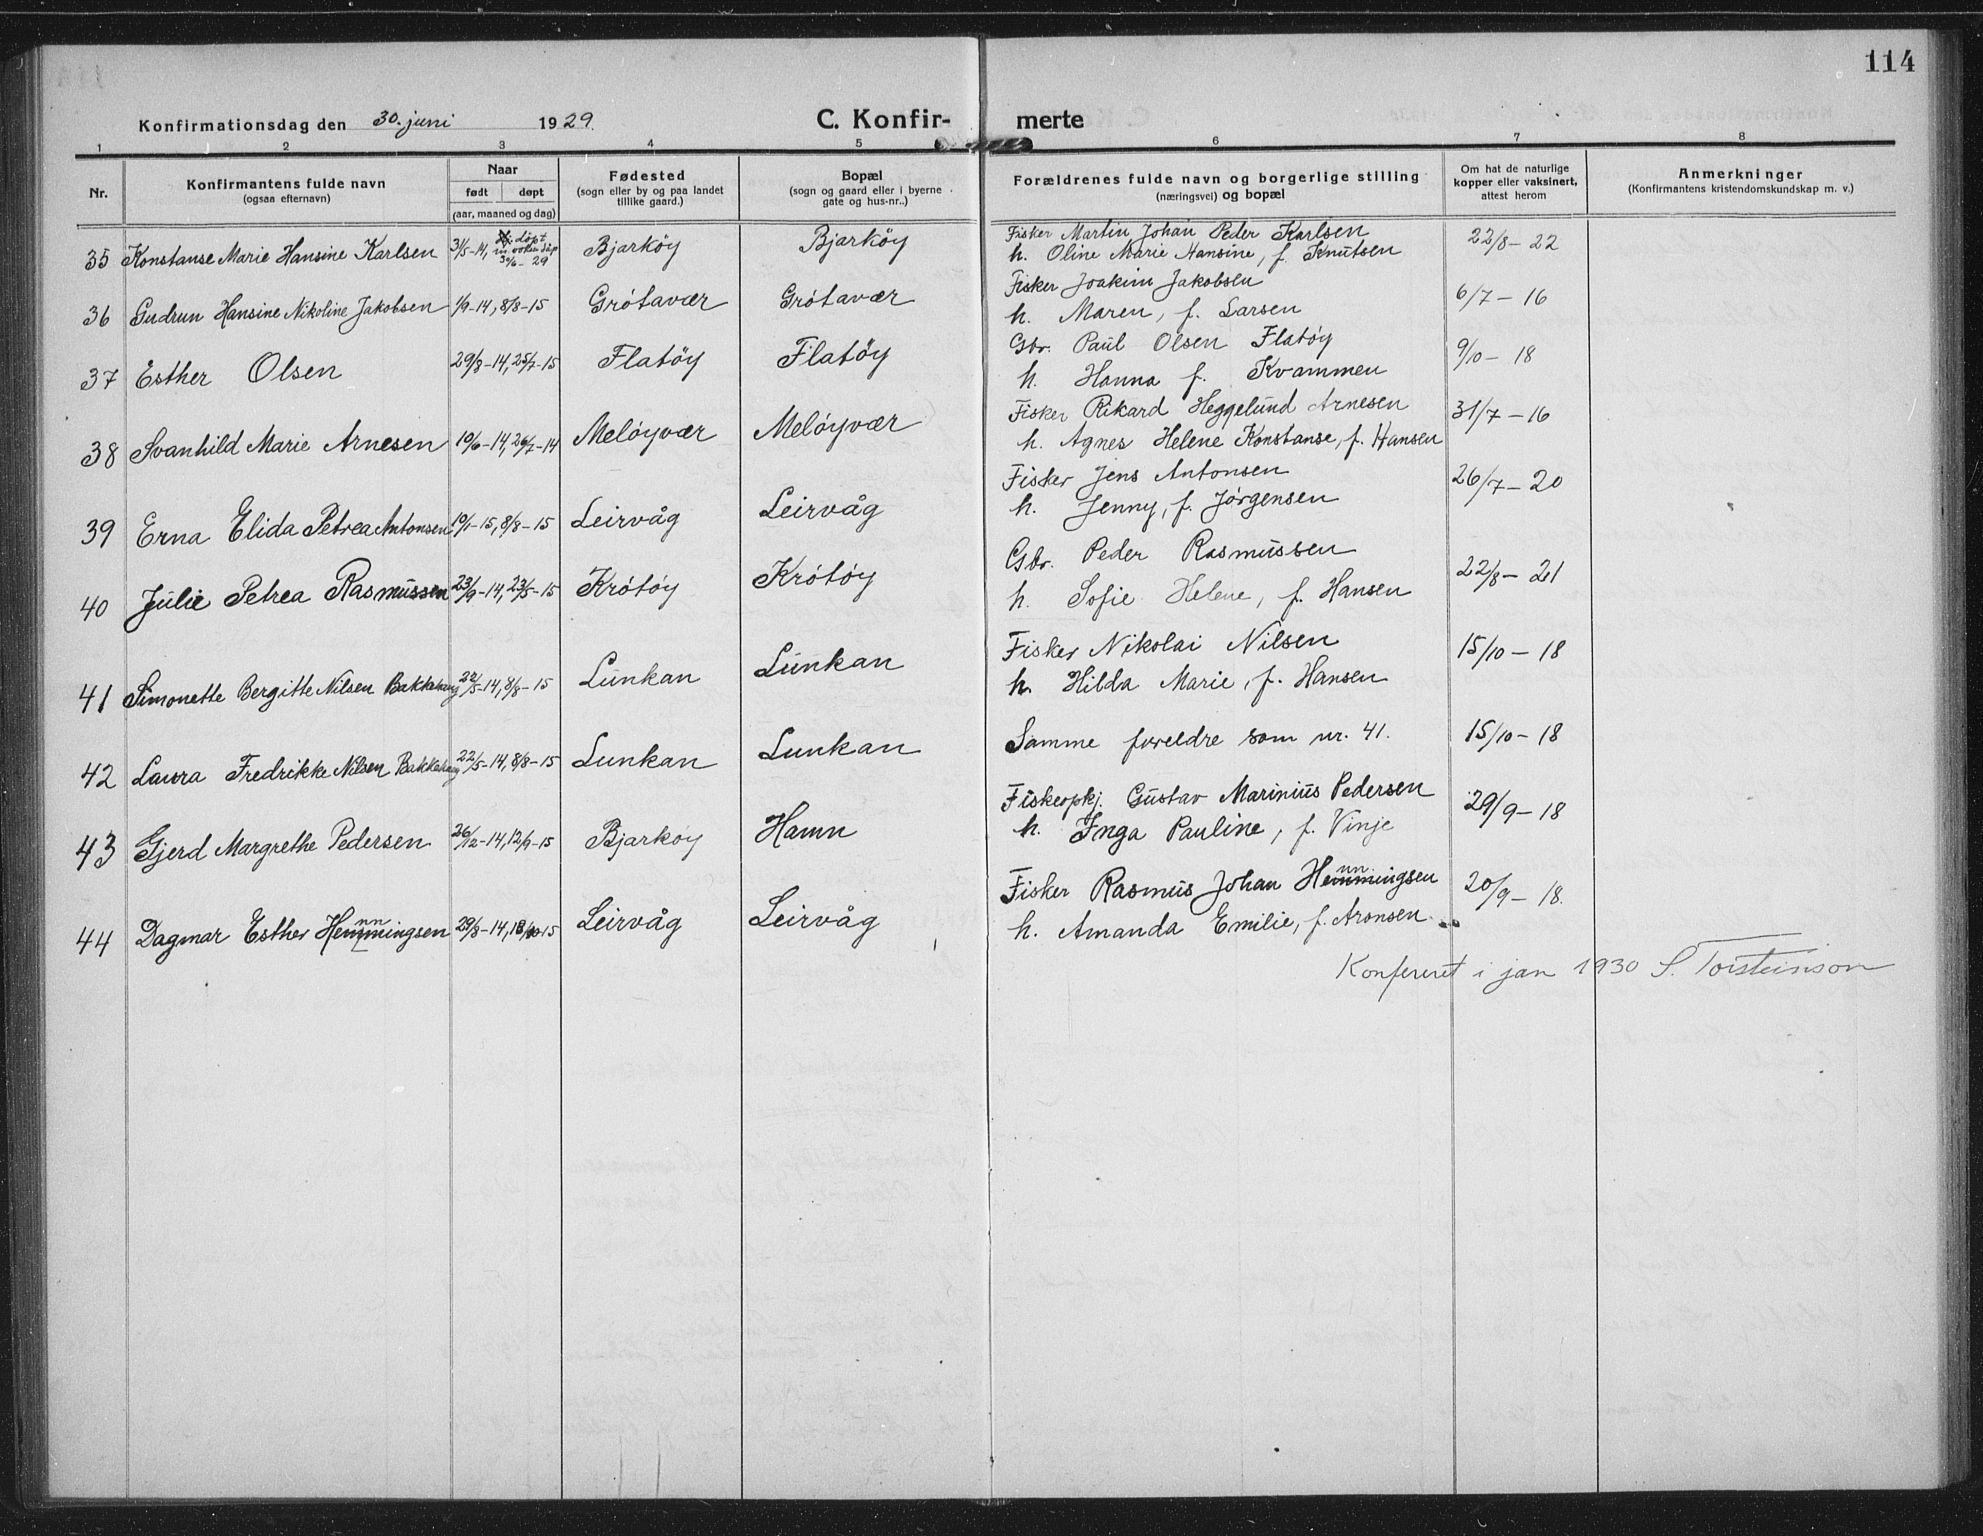 114
Konfirmationsdag den 30. juni 1929.
C. Konfirmerte
1 2 3 4 5 6 7 8
Nr.
Konfirmantens fulde navn
(ogsaa efternavn)
Naar
født døpt
(aar, maaned og dag)
Fødested
(sogn eller by og paa landet
tillike gaard.)
Bopæl
(sogn og gaard eller i byerne
gate og hus-nr.)
Forældrenes fulde navn og borgerlige stilling
(næringsvei) og bopæl
Om hat de naturlige
kopper eller vaksinert,
attest herom
Anmerkninger
(Konfirmantens kristendomskundskap m. v.)
35 Konstanse Marie Hansine Karlsen 31/5-14, døpt 30/6-29 Bjarköy Bjarköy
Fisker Martin Johan Peder Karlsen
h. Oline Marie Hansine, f. Knutsen 22/8-22
36 Gudrun Hansine Nikoline Jakobsen 1/9-14, 8/8-15 Grótavær Grótavær
Fisker Joakim Jakobsen
h. Maren, f. Larsen 6/7-16
37 Esther Olsen 29/8-14, 25/7-15 Flatöy Flatöy
Gbr. Paul Olsen Flatöy
h. Hanna f. Kvammen 9/10-18
38 Svanhild Marie Arnesen 10/6-14, 26/7-14 Melöyvær Melöyvær
Fisker Rikard Heggelund Arnesen
h. Agnes Helene Konstanse, f. Hansen 31/7-16
39 Erna Elida Petrea Antonsen 10/1-15, 8/8-15 Leirvåg Leirvåg
Fisker Jens Antonsen
h. Jenny, f. Jörgensen 26/7-20
40 Julie Petrea Rasmussen 23/9-14, 23/5-15 Krótöy Krótöy
Gbr. Peder Rasmussen
h. Sofie Helene, f. Hansen 22/8-21
41 Simonette Bergitte Nilsen Bakkehaug 22/5-14, 8/8-15 Lunkan Lunkan
Fisker Nikolai Nilsen
h. Hilda Marie, f. Hansen 15/10-18
42 Laura Fredrikke Nilsen Bakkehaug 22/5-14, 8/8-15 Lunkan Lunkan
Samme foreldre som nr. 41. 15/10-18
43 Gjerd Margrethe Pedersen 26/12-14, 12/9-15 Bjarkoy Hamn
Fiskeopkj. Gustav Marinius Pedersen
h. Inga Pauline, f. Vinje 29/9-18
44 Dagmar Esther Henningsen 29/8-14, 15 Leirvåg Leirvåg
Fisker Rasmus Johan Henningsen
h. Amanda Emilie, f. Aronsen. 20/9-18.
Konfereret i jan 1930 S. Torsteinson